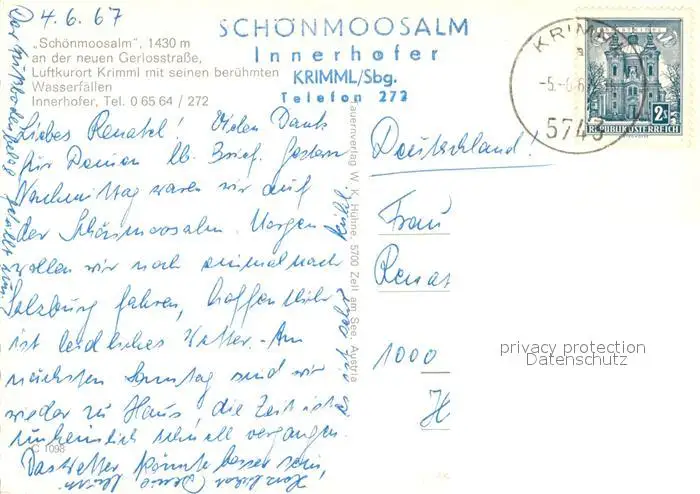 4.6.67
„Schönmoosalm", 1430 m
an der neuen Gerlosstraße,
Luftkurort Krimml mit seinen berühmten
Wasserfällen
Innerhofer, Tel. 0 65 64 / 272
SCHÖNMOOSALM
Innerhofer
KRIMML/Sbg.
Telefon 272
KRIMML
5743
2 S
REPUBLIK ÖSTERREICH
Liebes Renatel! Vielen Dank
für Deinen lb. Brief. Gestern
Nachmittag waren wir auf
der Schönmoosalm. Morgen
wollen wir noch einmal nach
Salzburg fahren, hoffentlich
ist leidliches Wetter. Am
nächsten Sonntag sind wir
wieder zu Haus, die Zeit ist
unheimlich schnell vergangen.
Das Wetter könnte besser sein,
es ist sehr kühl.
Der Fußbodenbelag gefällt mir
Herzliche Grüße
C 1098
auernverlag W. K. Hühne, 5700 Zell am See, Austria
Deutschland!
Frau
Renat
1000
H
privacy protection
Datenschutz